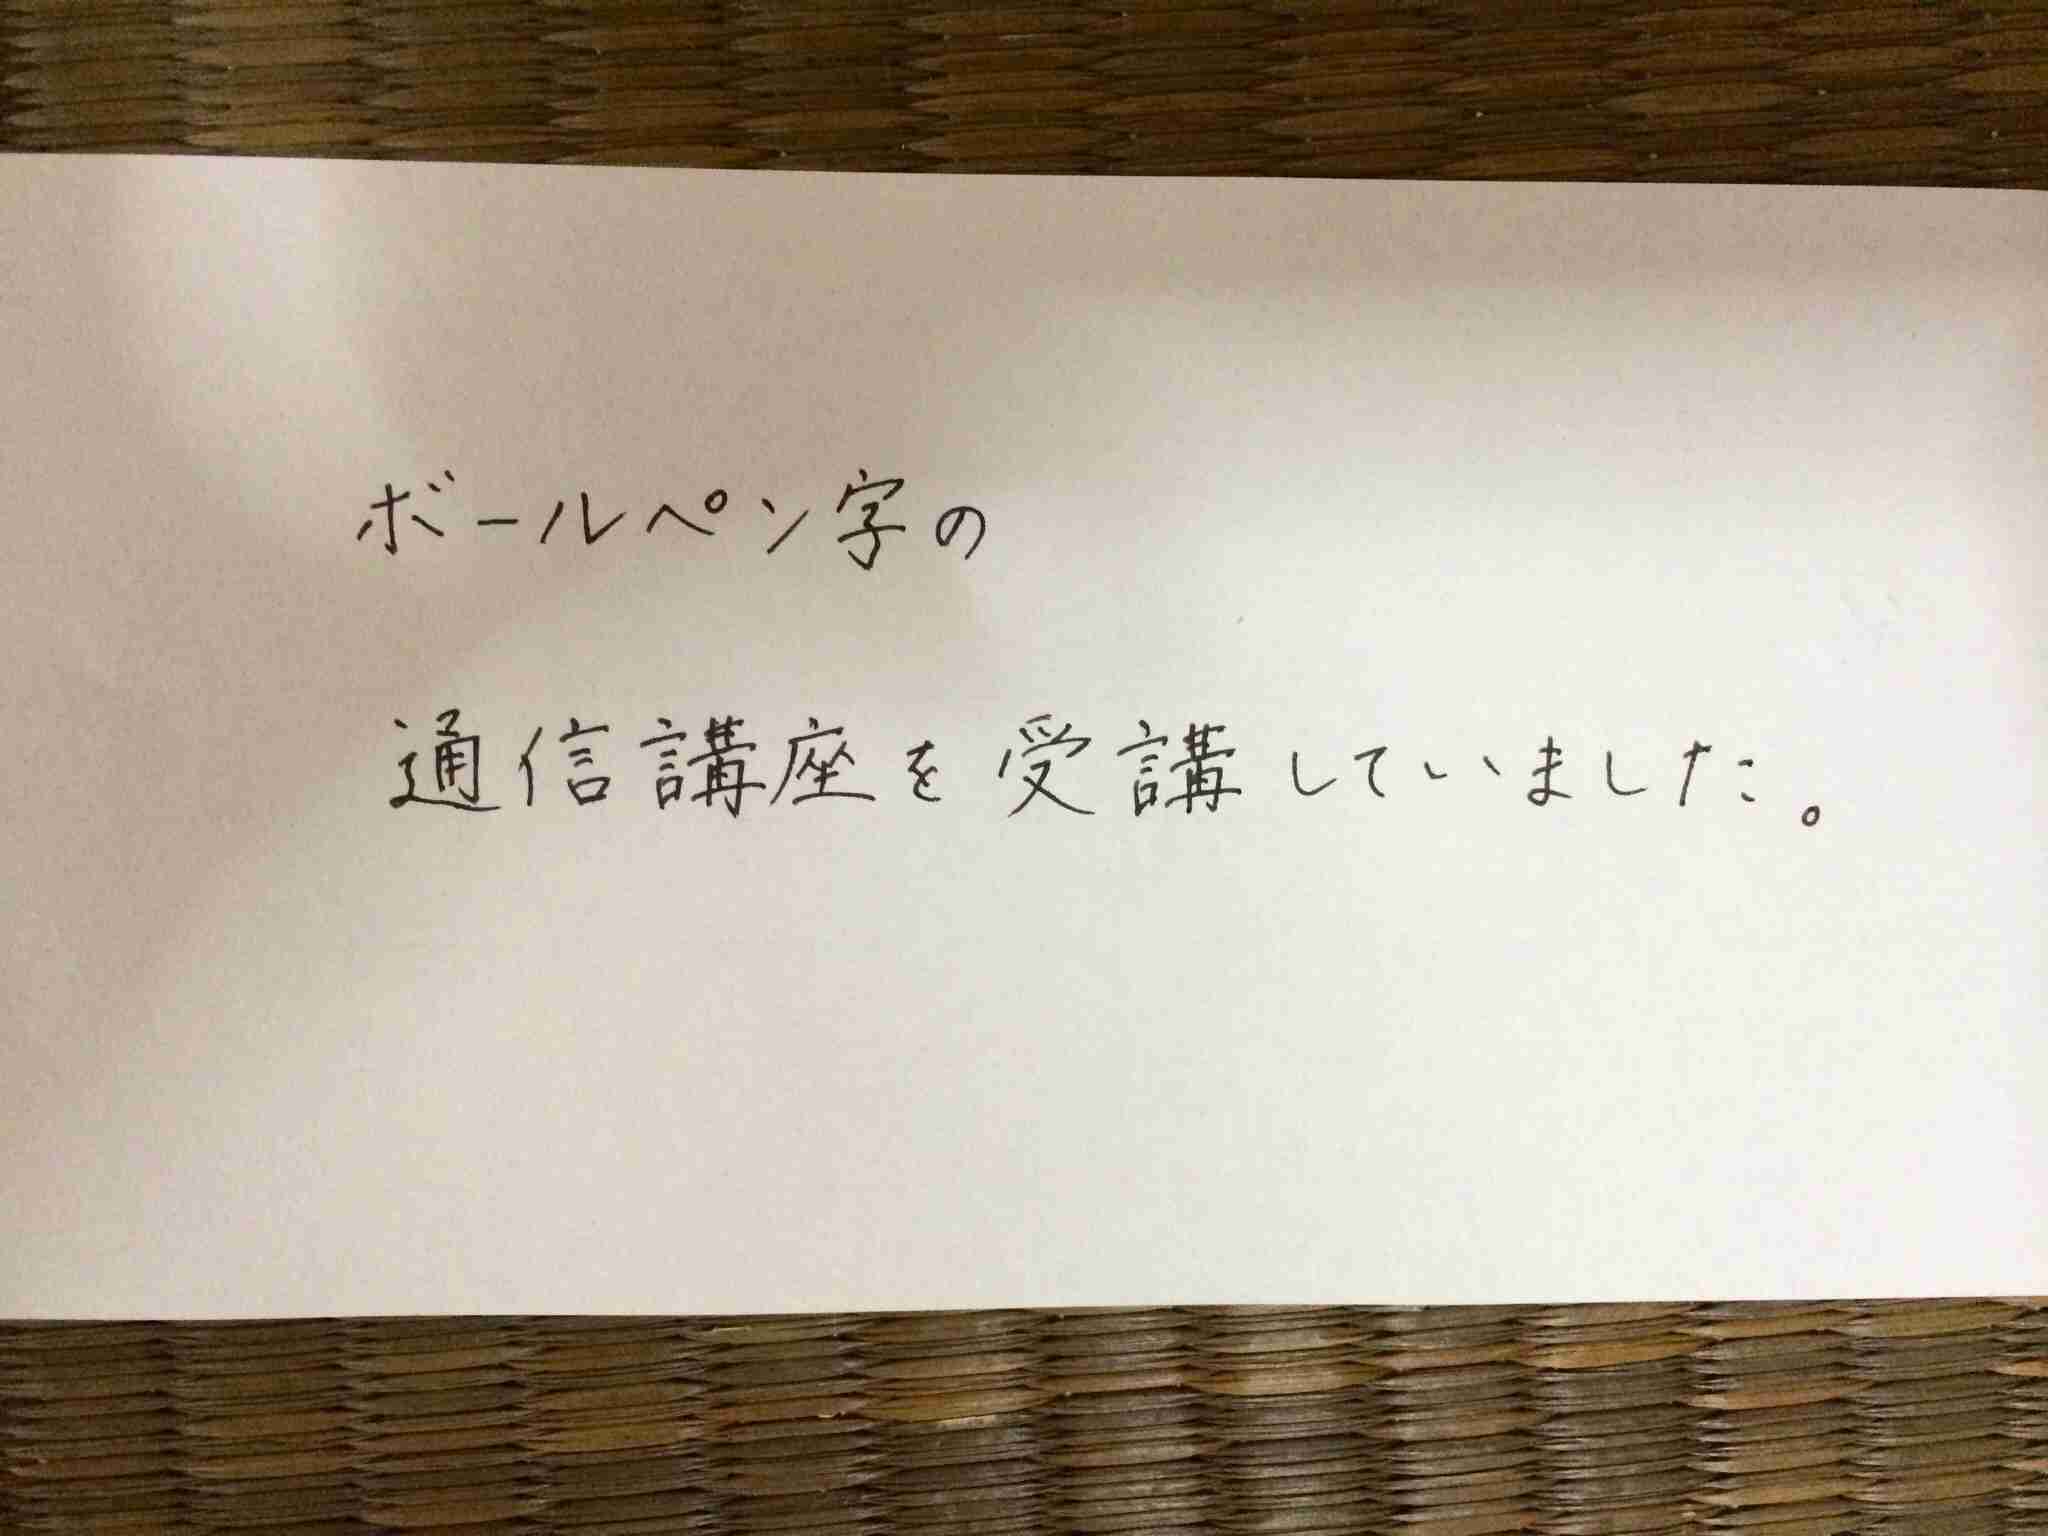 ボールペン字の
通信講座を受講していました。